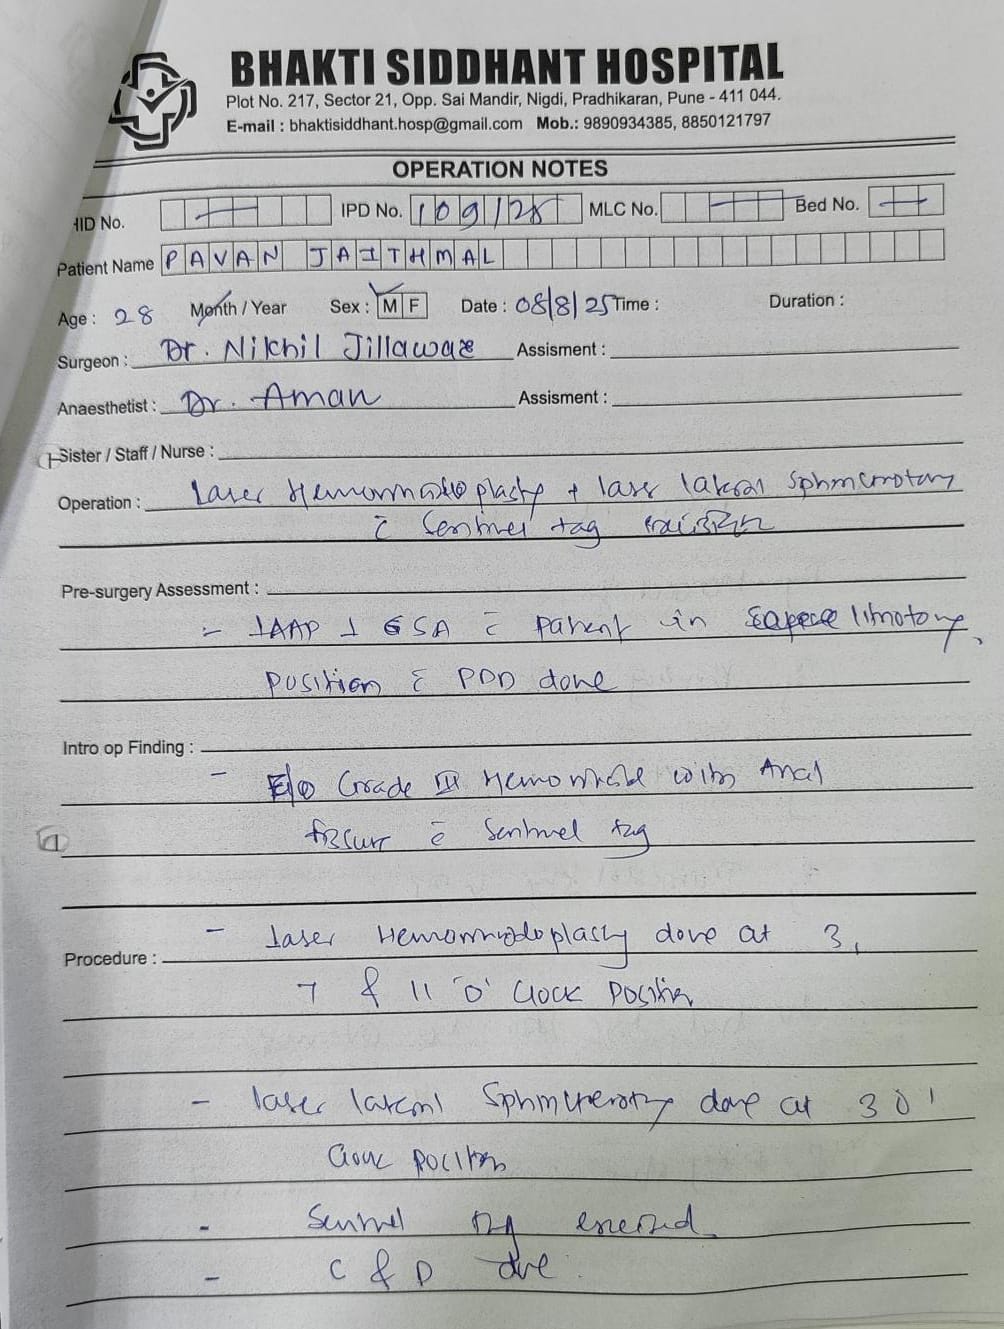 BHAKTI SIDDHANT HOSPITAL
Plot No. 217, Sector 21, Opp. Sai Mandir, Nigdi, Pradhikaran, Pune - 411 044.
E-mail : bhaktisiddhant.hosp@gmail.com Mob.: 9890934385, 8850121797
OPERATION NOTES
HID No. IPD No. 109/25 MLC No. Bed No.
Patient Name PAVAN JAITHMAL
Age : 28 Month / Year Sex : M F Date : 08/8/25 Time : Duration :
Surgeon : Dr. Nikhil Jillaware Assisment :
Anaesthetist : Dr. Aman Assisment :
Sister / Staff / Nurse :
Operation : Laser Hemorrhoidoplasty + laser lateral Sphincterotomy
c̄ Sentinel tag excision
Pre-surgery Assessment :
- ↓AAP ↓ SA c̄ patient in lithotomy
position c̄ PDD done
Intro op Finding :
- E/o Grade III Hemorrhoid with Anal
fissure c̄ Sentinel tag
- Laser Hemorrhoidoplasty done at 3,
Procedure :
7 & 11 'O' Clock Position
- laser lateral Sphincterotomy done at 3 O'
Clock position
- Sentinel tag excised
- C & D done.